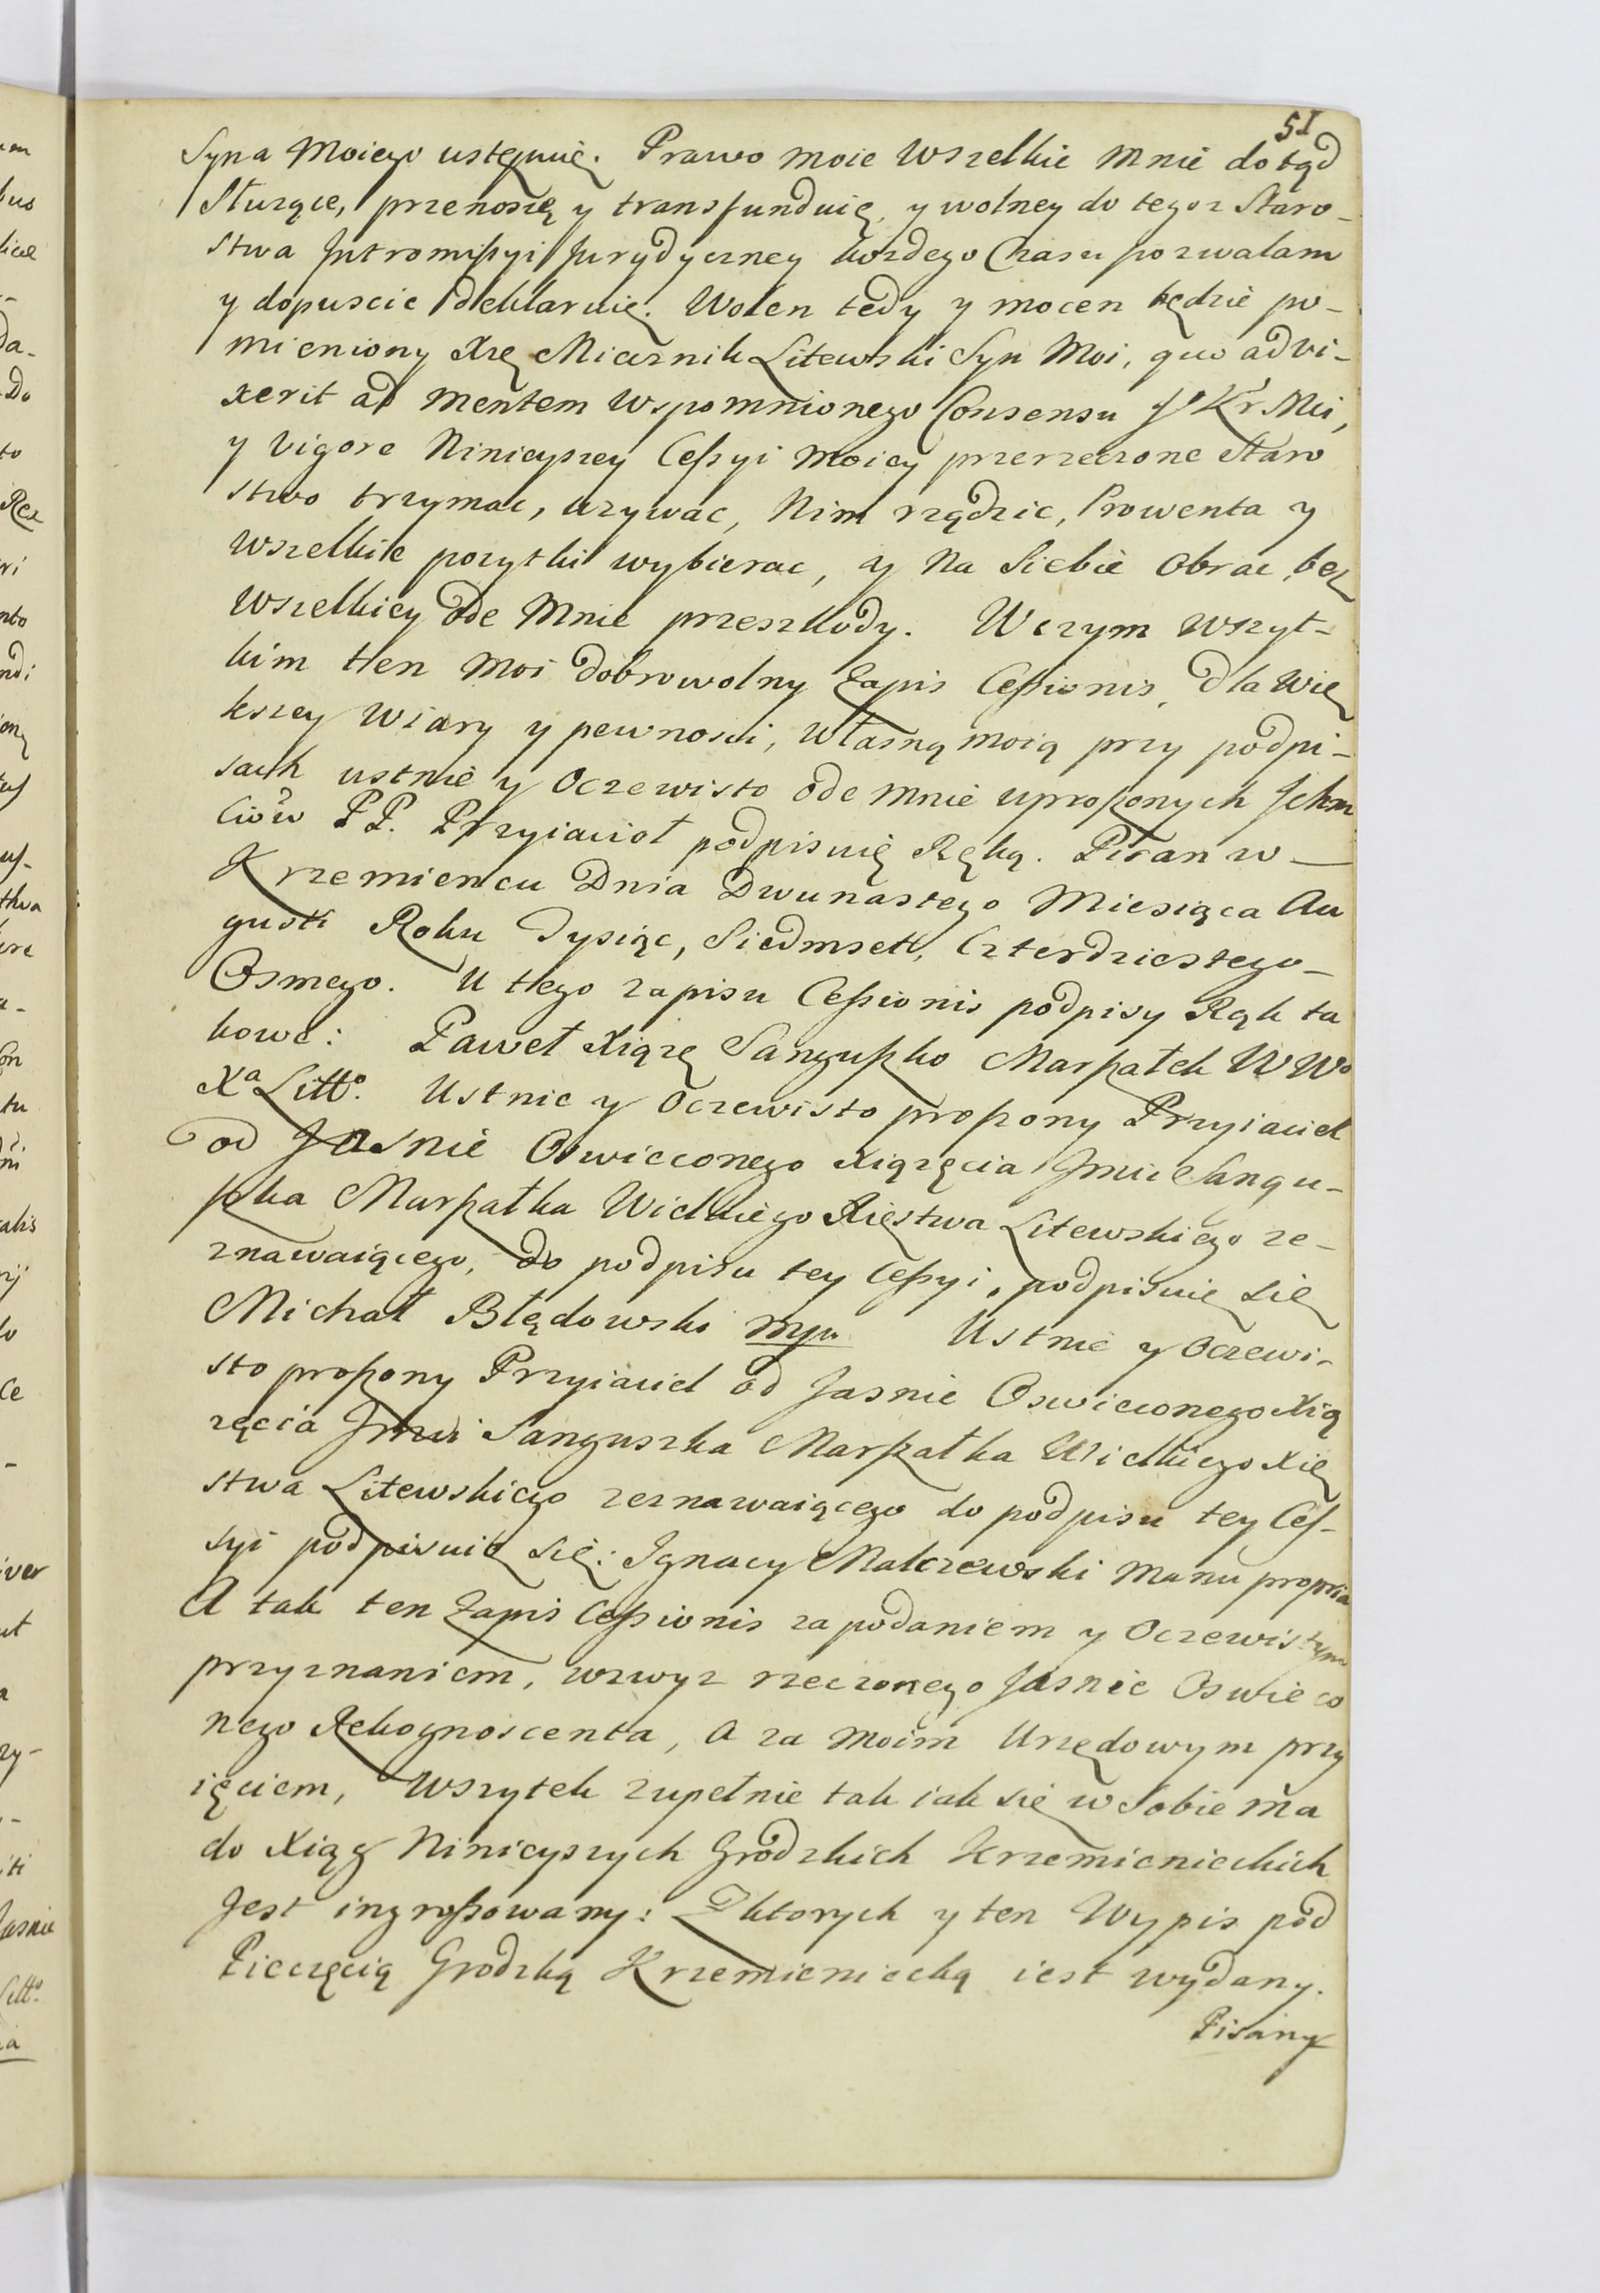 51
Syna Moiego ustępuię. Prawo moie Wszelkie Mnie dotąd
Służące, przenoszę y transfunduię, y wolney do tegoz Staro-
stwa Jntromissyi Jurydyczney kozdego Czasu pozwalam
y dopuscic deklaruię. Wolen tedy y mocen będzie po-
mieniony Xże Miecznik Litewski Syn Moi, quo advi-
xerit ad mentem Wspomnionego Consensu Jo Kr Mci,
y vigore Ninieyszey Cessyi Moiey przerzeczone Staro
stwo trzymac, uzywac, Nim rządzic, Prowenta y
Wszelkie pozytki wybierac, y Na Siebie Obrac, bez
Wszelkiey ode Mnie przeszkody. W czym Wszyt-
kim tten Moi dobrowolny Zapis Cessionis, dla Wię
kszey Wiary y pewnosci, Własną moią przy podpi-
sach ustnie y Oczewisto ode mnie uproszonych Jchm
Ciów PP. Przyiacioł podpisuię Ręką. Pisan w —
Krzemiencu Dnia Dwunastego Miesiąca Au
gusti Roku Tysiąc, Siedmset, Czterdziestego-
Osmego. U ttego zapisu Cessionis podpisy Rąk ta
kowe: Paweł Xiąże Sanguszko Marszałek W Wo
Xa Litto. Ustnie y Oczewisto proszony Przyiaciel
od Jasnie Oswieconego Xiążęcia Jmci Sangu-
szka Marszałka Wielkiego Xięstwa Litewskiego ze-
znawaiącego, do podpisu tey Cessyi, podpisuię się
Michał Błędowski mpr Ustnie y Oczewi-
sto proszony Przyiaciel od Jasnie Oswieconego Xią
zęcia Jmci Sanguszka Marszałka Wielkiego Xię
stwa Litewskiego zeznawaiącego do podpisu tey Ces-
syi podpisuię się: Jgnacy Malczewski Manu propria
A tak ten Zapis Cessionis za podaniem y Oczewistym
przyznaniem, wzwyz rzeczonego Jasnie Oswieco
nego Rekognoscenta, A za Moim Urzędowym przy
ięciem, Wszytek zupełnie tak iak się w Sobie ma
do Xiąg Ninieyszych Grodzkich Krzemienieckich
Jest ingrossowany: Z ktorych y ten Wypis pod
Pieczęcią Grodzką Krzemieniecką iest wydany.
Pisany